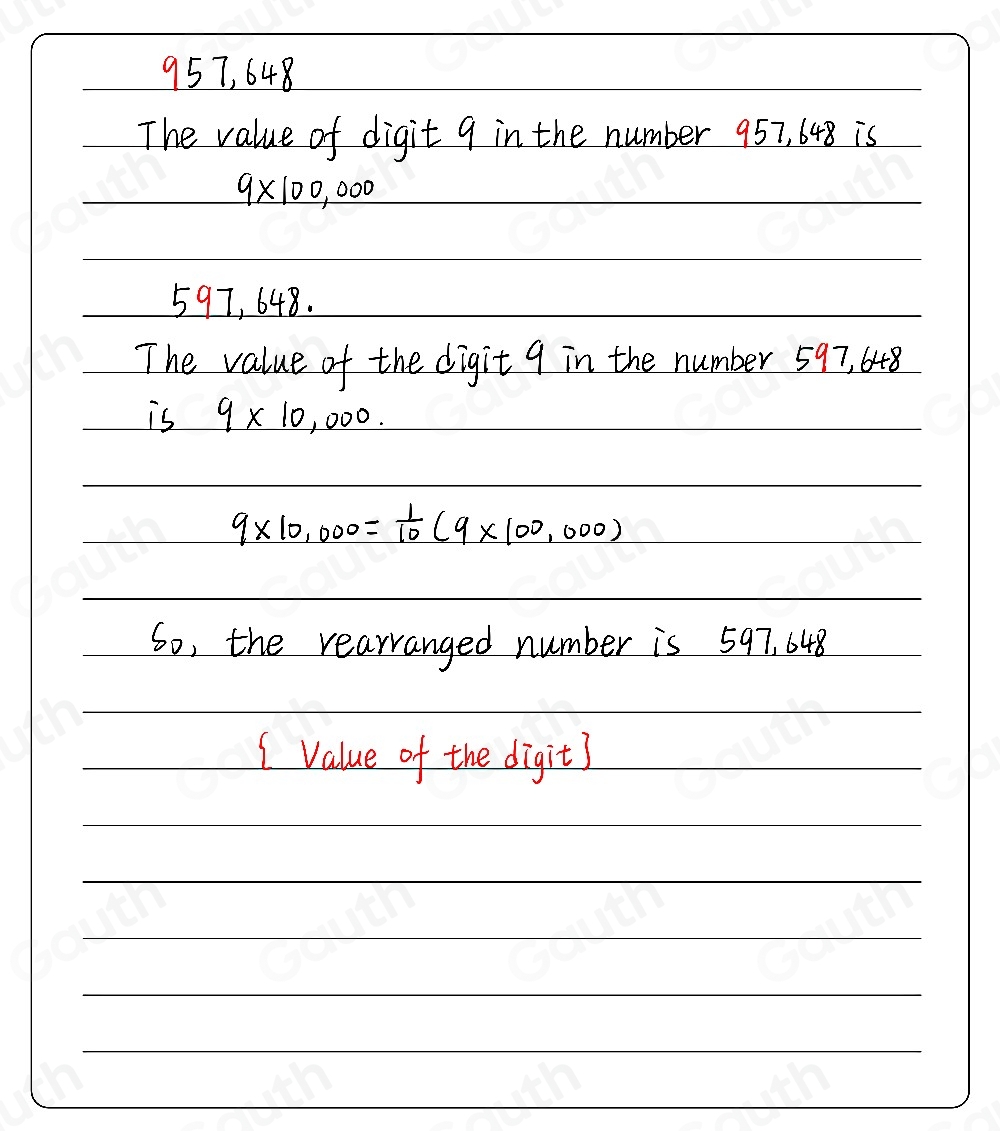 957,648
The value of digit 9 in the number 957,648 is
9×100,000
597,648.
The value of the digit 9 in the number 597,648
is 9 × 10,000.
9×10,000 = 1/10 (9 × 100,000)
So, the rearranged number is 597,648
{ Value of the digit }
Gauth